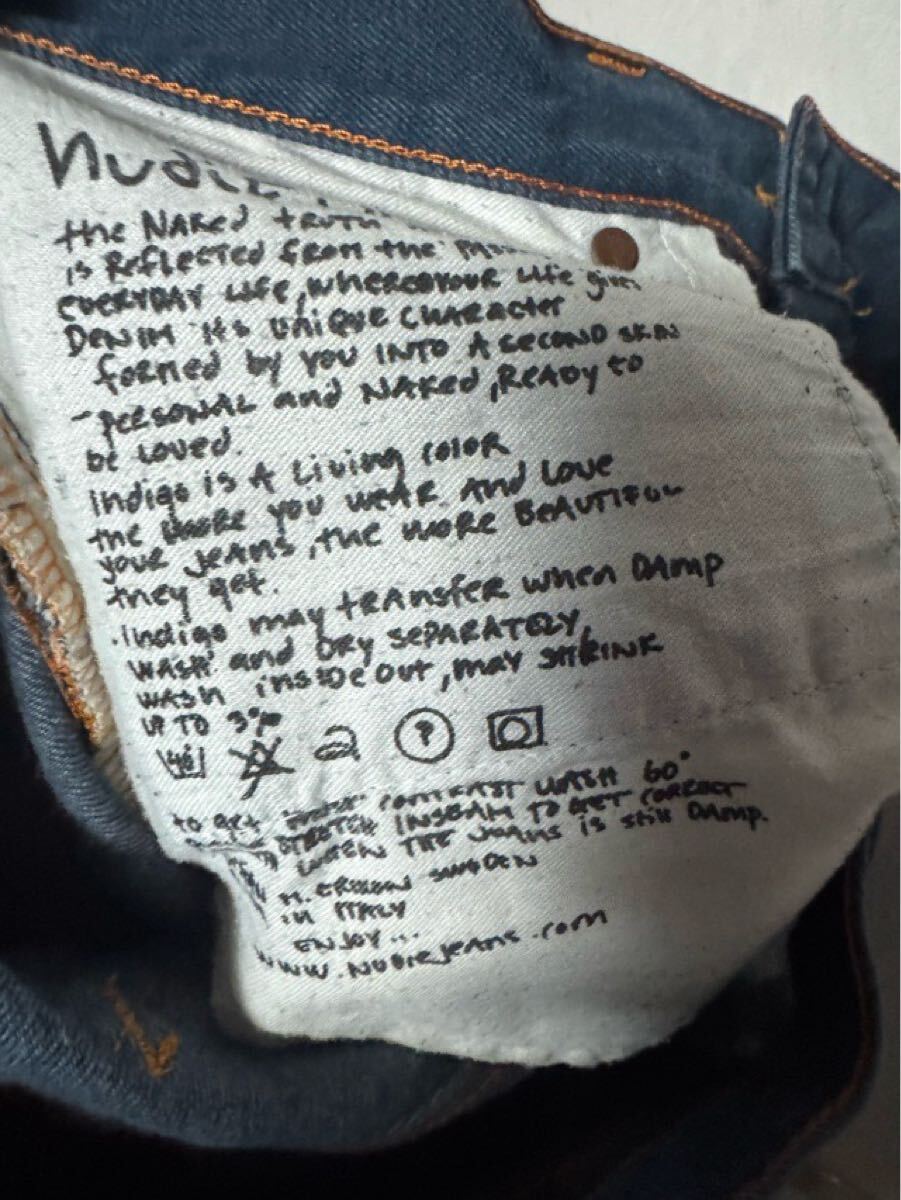 nudie
the NAKed tRUTH
is Reflected from the
EVERYDAY Life, whereYOUR Life gives
DENIM its UNiQUE CHARACter
formed by you INTO A SECOND SKIN
- PERSONAL and NAKed, ReADy to
be Loved.
Indigo is A Living color
the more you weAR And Love
your JeANS, the more BeAUTIFUL
they get.
.Indigo may tRANsfer when DAmp
WASH and DRY SePARATeLY,
WASH insiDe out, mAY SHRINK
UP TO 3%
40 ?
to get CONTRAST WASH 60°
STRETCH INSEAM TO GET CORRECT
WHEN THE JeAns is still DAmp.
M. ERIXON SWEDEN
in ITALY
ENJOY...
www.NUDieJeAns.com